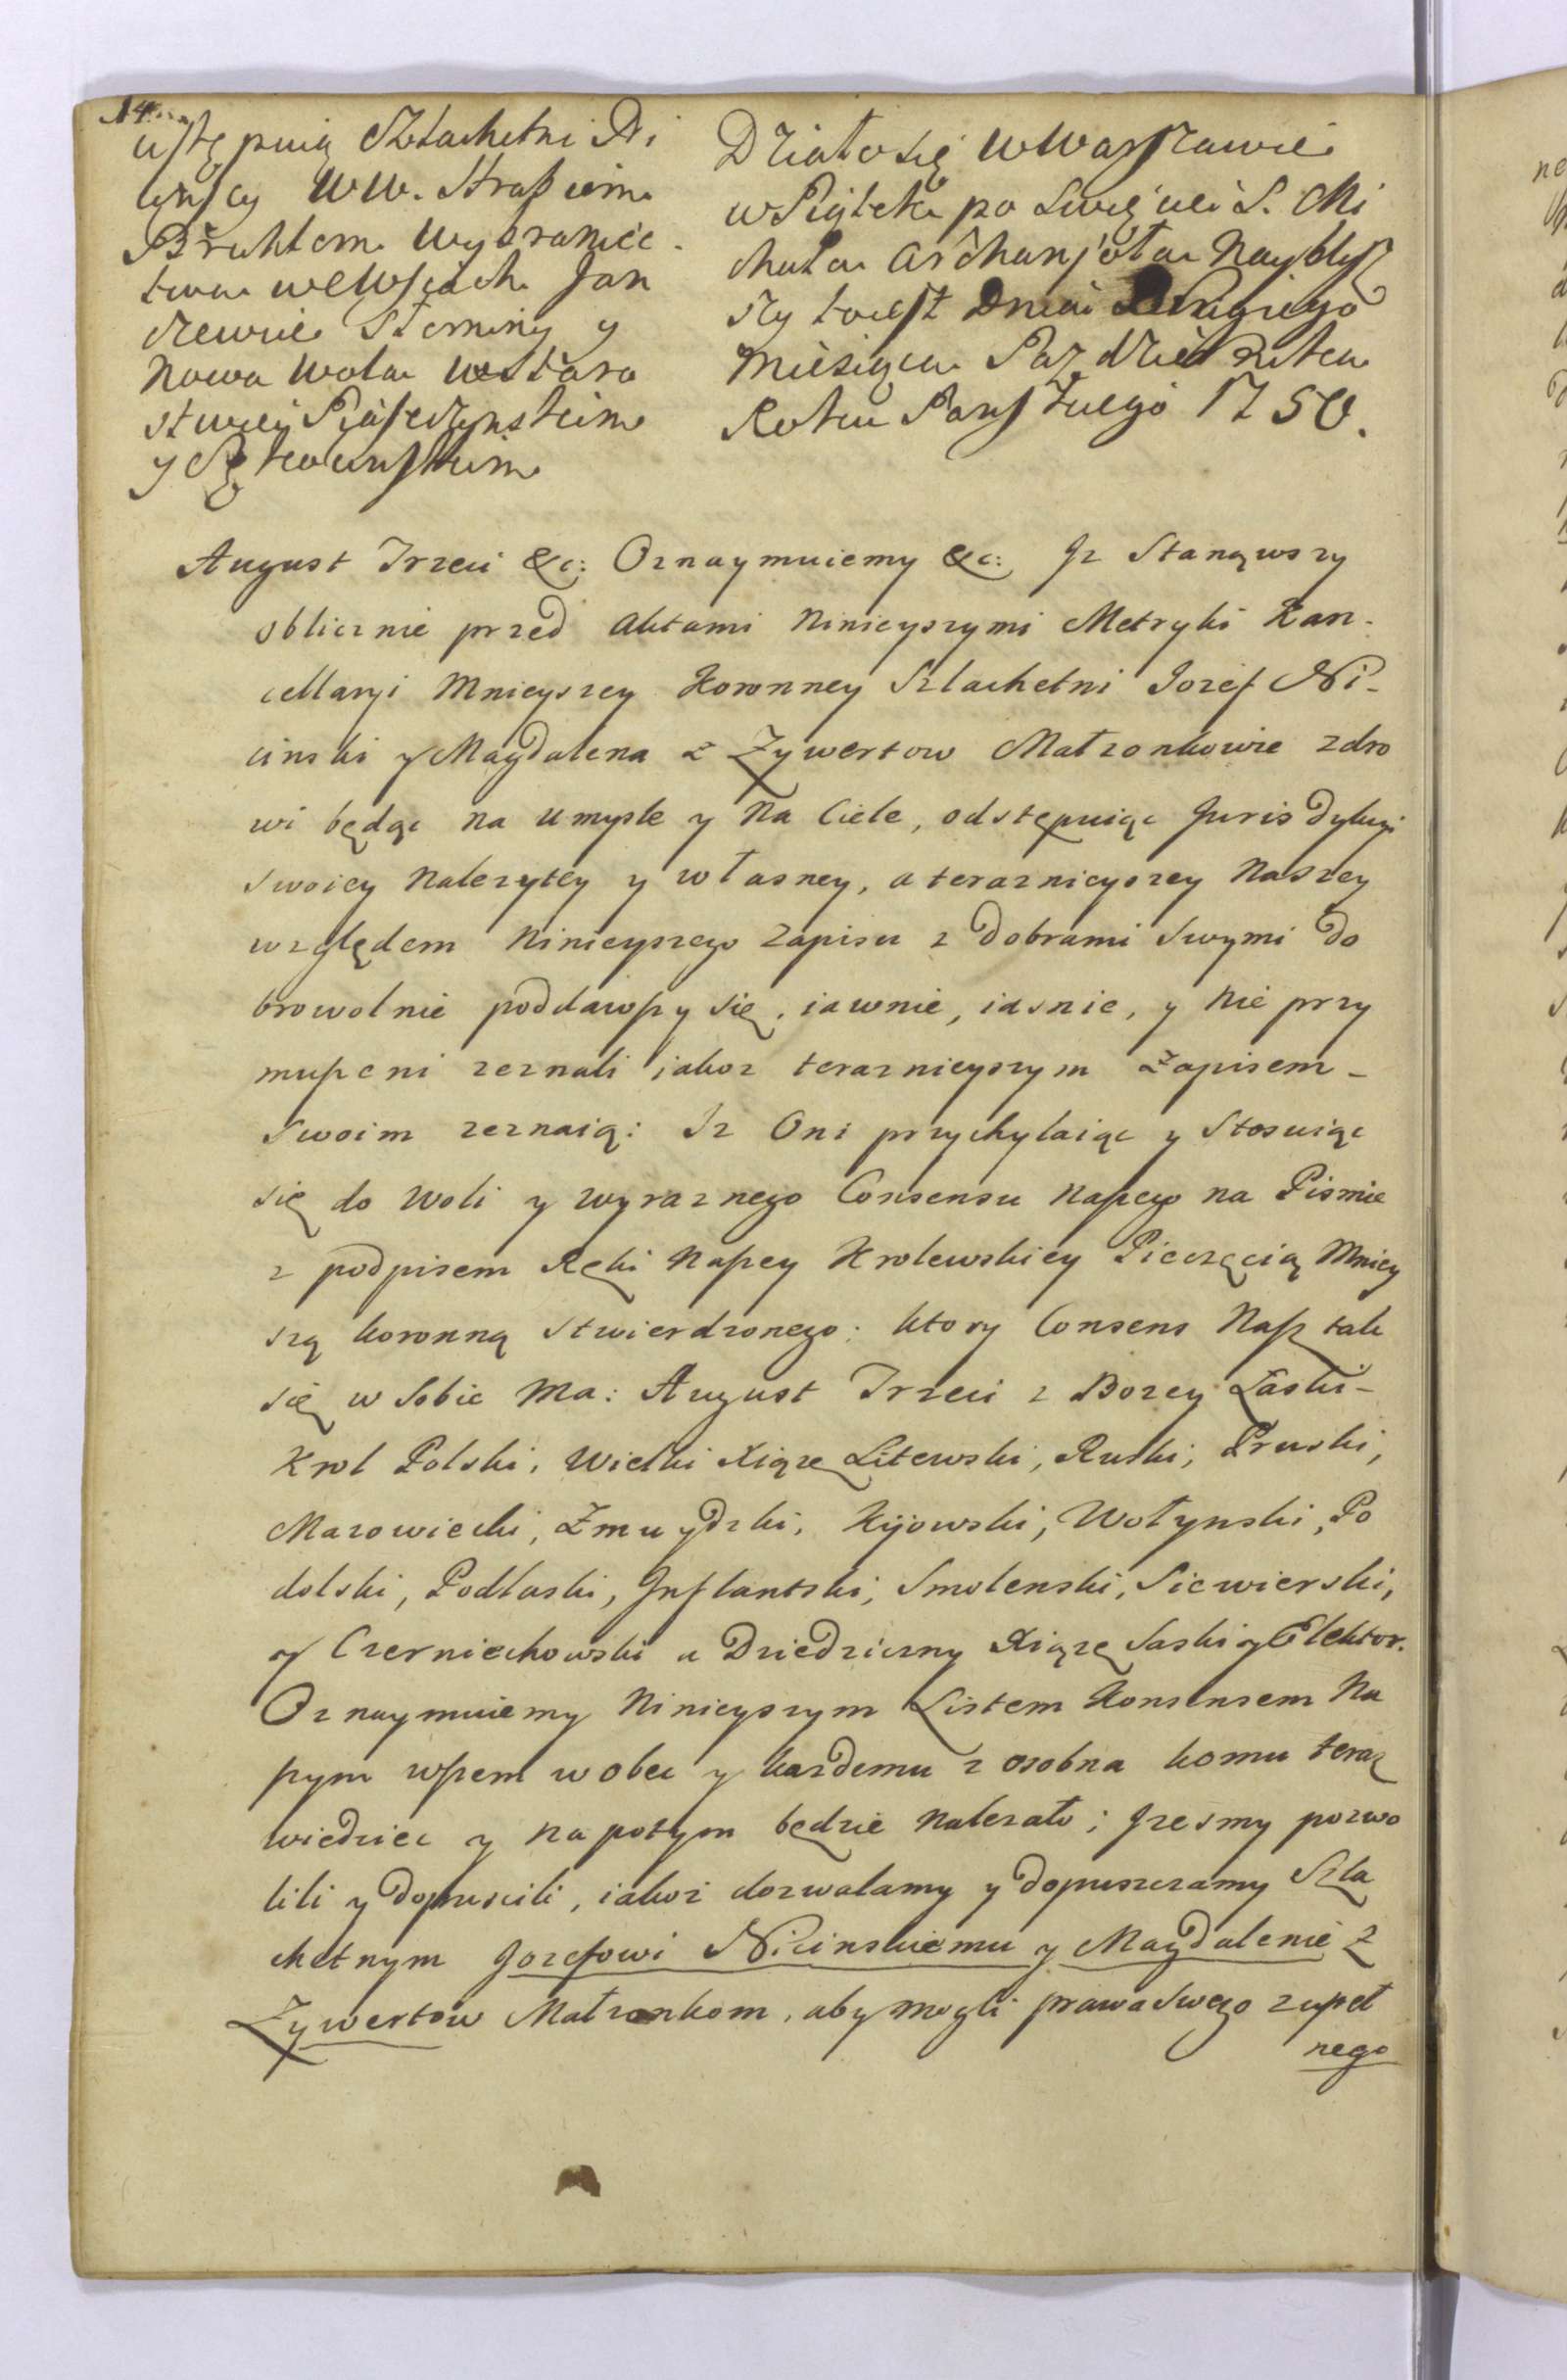 14
ustępuią Szlachetni Ni
cynscy WW. Strasiom
Bruhlom Wybraniec-
twa we Wsiach Jan
czewie Słominy y
Nowa Wola w Staro
stwiey Piaseczynskim
y
Działo się w Warszawie
w Piątek po Swięcie S. Mi
chała Archanjoła Naybliż
szy to iest Dnia Drugiego
Miesiąca Pazdziernika
Roku Panskiego 1750.
August Trzeci &c: Oznaymuiemy &c: Jz Stanąwszy
oblicznie przed Aktami Ninieyszymi Metryki Kan-
cellaryi Mnieyszey Koronney Szlachetni Jozef Ni-
cinski y Magdalena z Zywertow Małzonkowie zdro
wi będąc na Umysle y na Ciele, odstępuiąc Jurisdykcyi
Swoiey Nalezytey y własney, a teraznieyszey Naszey
względem Ninieyszego Zapisu z Dobrami Swymi Do
browolnie poddawszy się, iawnie, iasnie, y Nie przy
muszeni zeznali iakoz teraznieyszym Zapisem-
Swoim zeznaią: Iz Oni przychylaiąc y Stosuiąc
się do Woli y wyraznego Consensu Naszego na Pismie
z podpisem Ręki Naszey Krolewskiey Pieczęcią Mniey
szą koronną stwierdzonego: ktory Consens Nasz tak
się w Sobie Ma: August Trzeci z Bozey Łaski-
Krol Polski, Wielki Xiąze Litewski, Ruski, Pruski,
Mazowiecki, Zmuydzki, Kijowski, Wołynski, Po
dolski, Podlaski, Jnflantski, Smolenski, Siewierski,
y Czerniechowski a Dziedziczny Xiązę Saski y Elektor.
Oznaymuiemy Ninieyszym Listem Konsensem Na
szym wszem wobec y kazdemu z osobna komu teraz
wiedziec y na potym będzie Nalezało; Jzesmy pozwo
lili y Dopuscili, iakoz dozwalamy y Dopuszczamy Szla
chetnym Jozefowi Nicinskiemu y Magdalenie z
Zywertow Małzonkom, aby mogli prawa Swego zupeł
nego